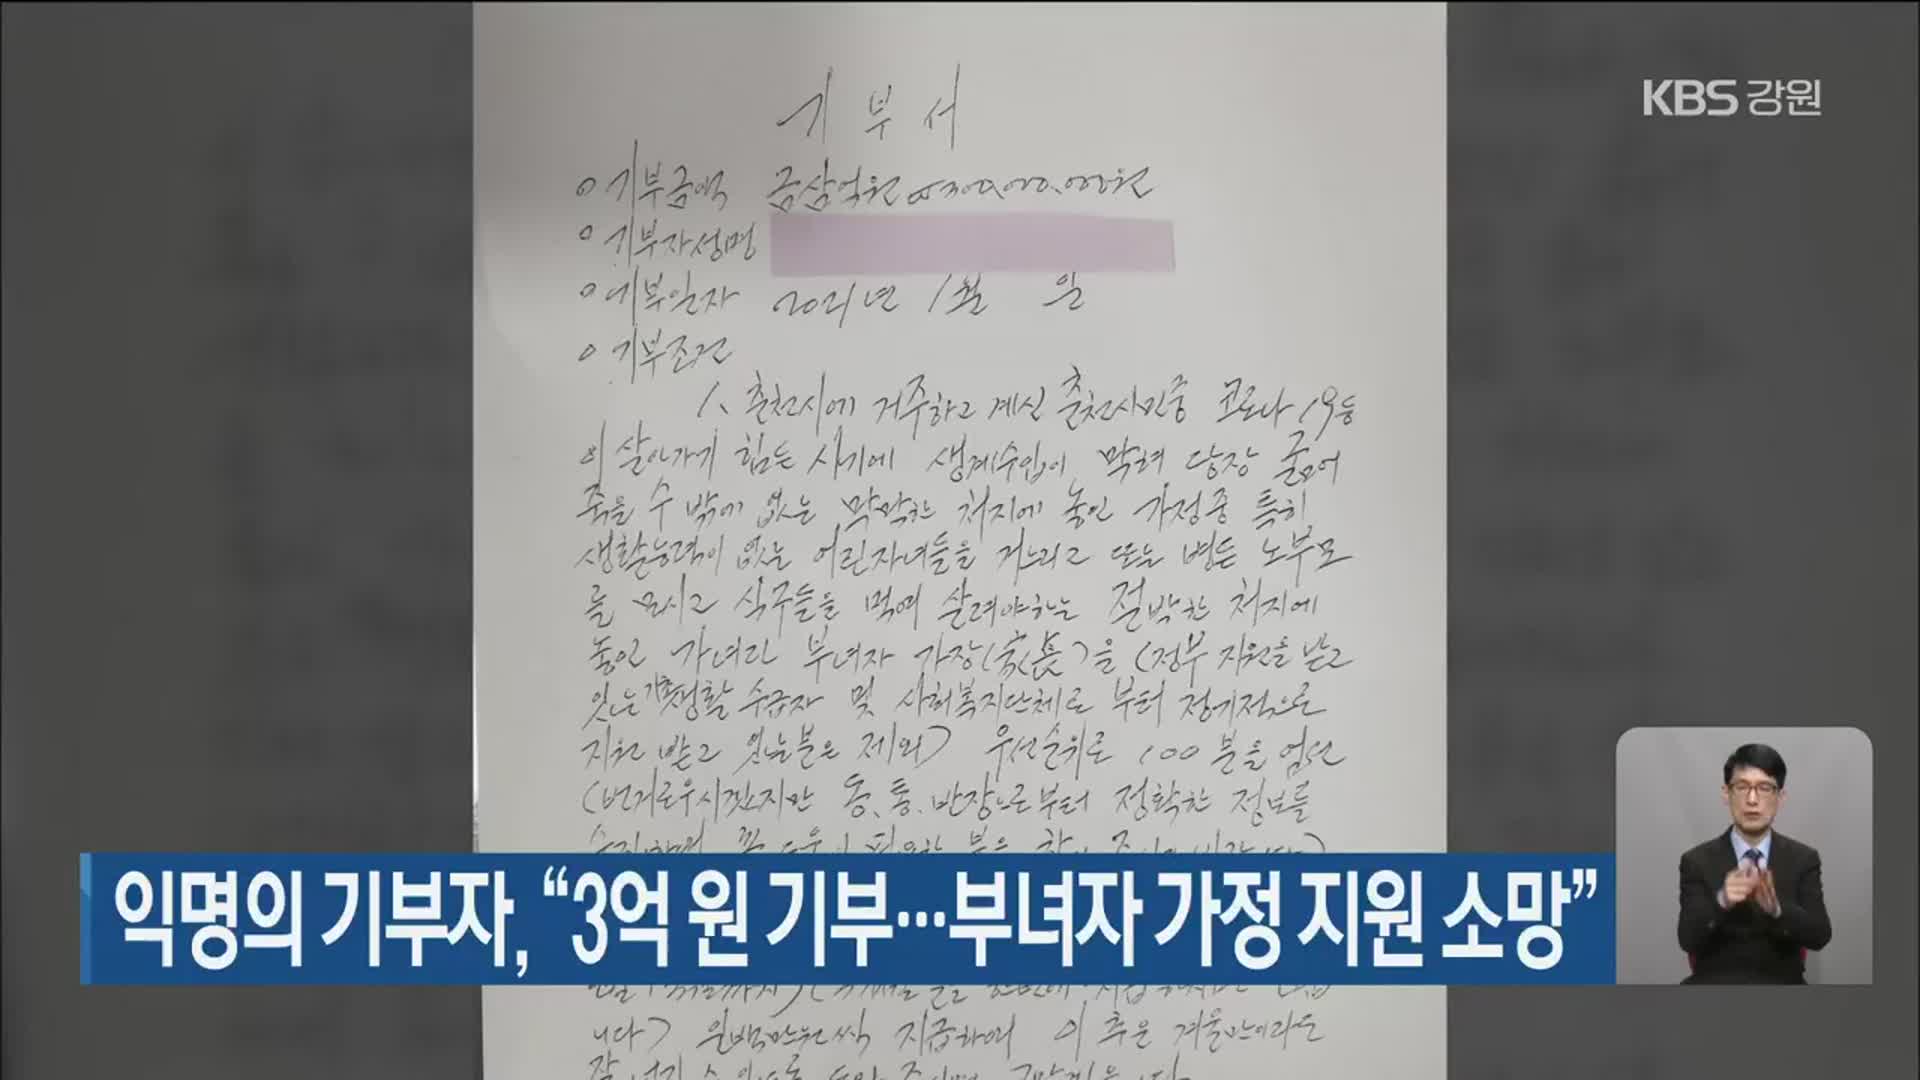 KBS 강원
기부서
o 기부금액 금삼억원 ₩300,000,000원
o 기부자성명
o 기부일자 2021년 1월 일
o 기부조건
1. 춘천시에 거주하고 계신 춘천시민중 코로나19등
이 살아가기 힘든 시기에 생계수입이 막혀 당장 굶어
죽을 수 밖에 없는 막막한 처지에 놓인 가정중 특히
생활능력이 없는 어린자녀들을 거느리고 또는 병든 노부모
를 모시고 식구들을 먹여 살려야하는 절박한 처지에
놓인 가녀린 부녀자 가장(家長)을 (정부 지원을 받고
있는 기초생활 수급자 및 사회복지단체로 부터 정기적으로
지원 받고 있는분은 제외) 우선순위로 100분을 엄선
(번거로우시겠지만 동.통.반장으로부터 정확한 정보를
익명의 기부자, “3억 원 기부…부녀자 가정 지원 소망”
니다) 일백만원씩 지급하여 이 추운 겨울만이라도